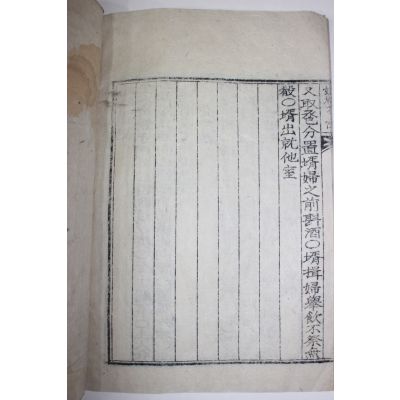 又取卺分置壻婦之前斟酒○壻揖婦舉飮不祭無
殽○壻出就他室